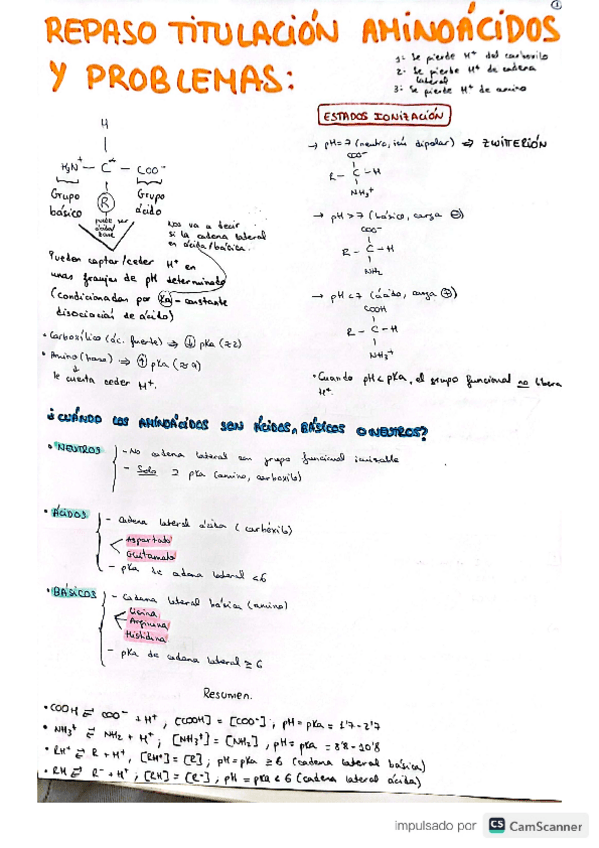 1
REPASO TITULACIÓN AMINOÁCIDOS
Y PROBLEMAS:
1- Se pierde H⁺ del carboxilo
2- Se pierde H⁺ de cadena
lateral
3- Se pierde H⁺ de amino
H
H₃N⁺ — C — COO⁻
Grupo
básico
R
Grupo
ácido
puede ser
ácida/
base
Nos va a decir
si la cadena lateral
es ácida/básica.
Pueden captar/ceder H⁺ en
unas franjas de pH determinado
(condicionadas por Ka - constante
disociación de ácido)
• Carboxílico (ác. fuerte) ⇒ ↓ pKa (≈2)
• Amino (base) ⇒ ↑ pKa (≈9)
↓
le cuesta ceder H⁺.
ESTADOS IONIZACIÓN
→ pH=7 (neutro, ión dipolar) ⇒ ZWITERIÓN
COO⁻
R - C - H
NH₃⁺
→ pH>7 (básico, carga ⊖)
COO⁻
R - C - H
NH₂
→ pH<7 (ácido, carga ⊕)
COOH
R - C - H
NH₃⁺
• Cuando pH<pKa, el grupo funcional no libera
H⁺.
¿CUÁNDO LOS AMINOÁCIDOS SON ÁCIDOS, BÁSICOS O NEUTROS?
• NEUTROS
- No cadena lateral con grupo funcional ionizable
- Solo 2 pKa (amino, carboxilo)
• ÁCIDOS
- Cadena lateral ácida (carboxilo)
Aspartado
Glutamato
- pKa de cadena lateral <6
• BÁSICOS
- Cadena lateral básica (amino)
Lisina
Arginina
Histidina
- pKa de cadena lateral ≥ 6
Resumen.
• COOH ⇌ COO⁻ + H⁺, [COOH] = [COO⁻], pH = pKa = 1'7-2'7
• NH₃⁺ ⇌ NH₂ + H⁺; [NH₃⁺] = [NH₂], pH = pKa = 8'8-10'8
• RH⁺ ⇌ R + H⁺, [RH⁺] = [R]; pH = pKa ≥6 (cadena lateral básica)
• RH ⇌ R⁻ + H⁺; [RH] = [R⁻]; pH = pKa < 6 (cadena lateral ácida)
impulsado por CS CamScanner